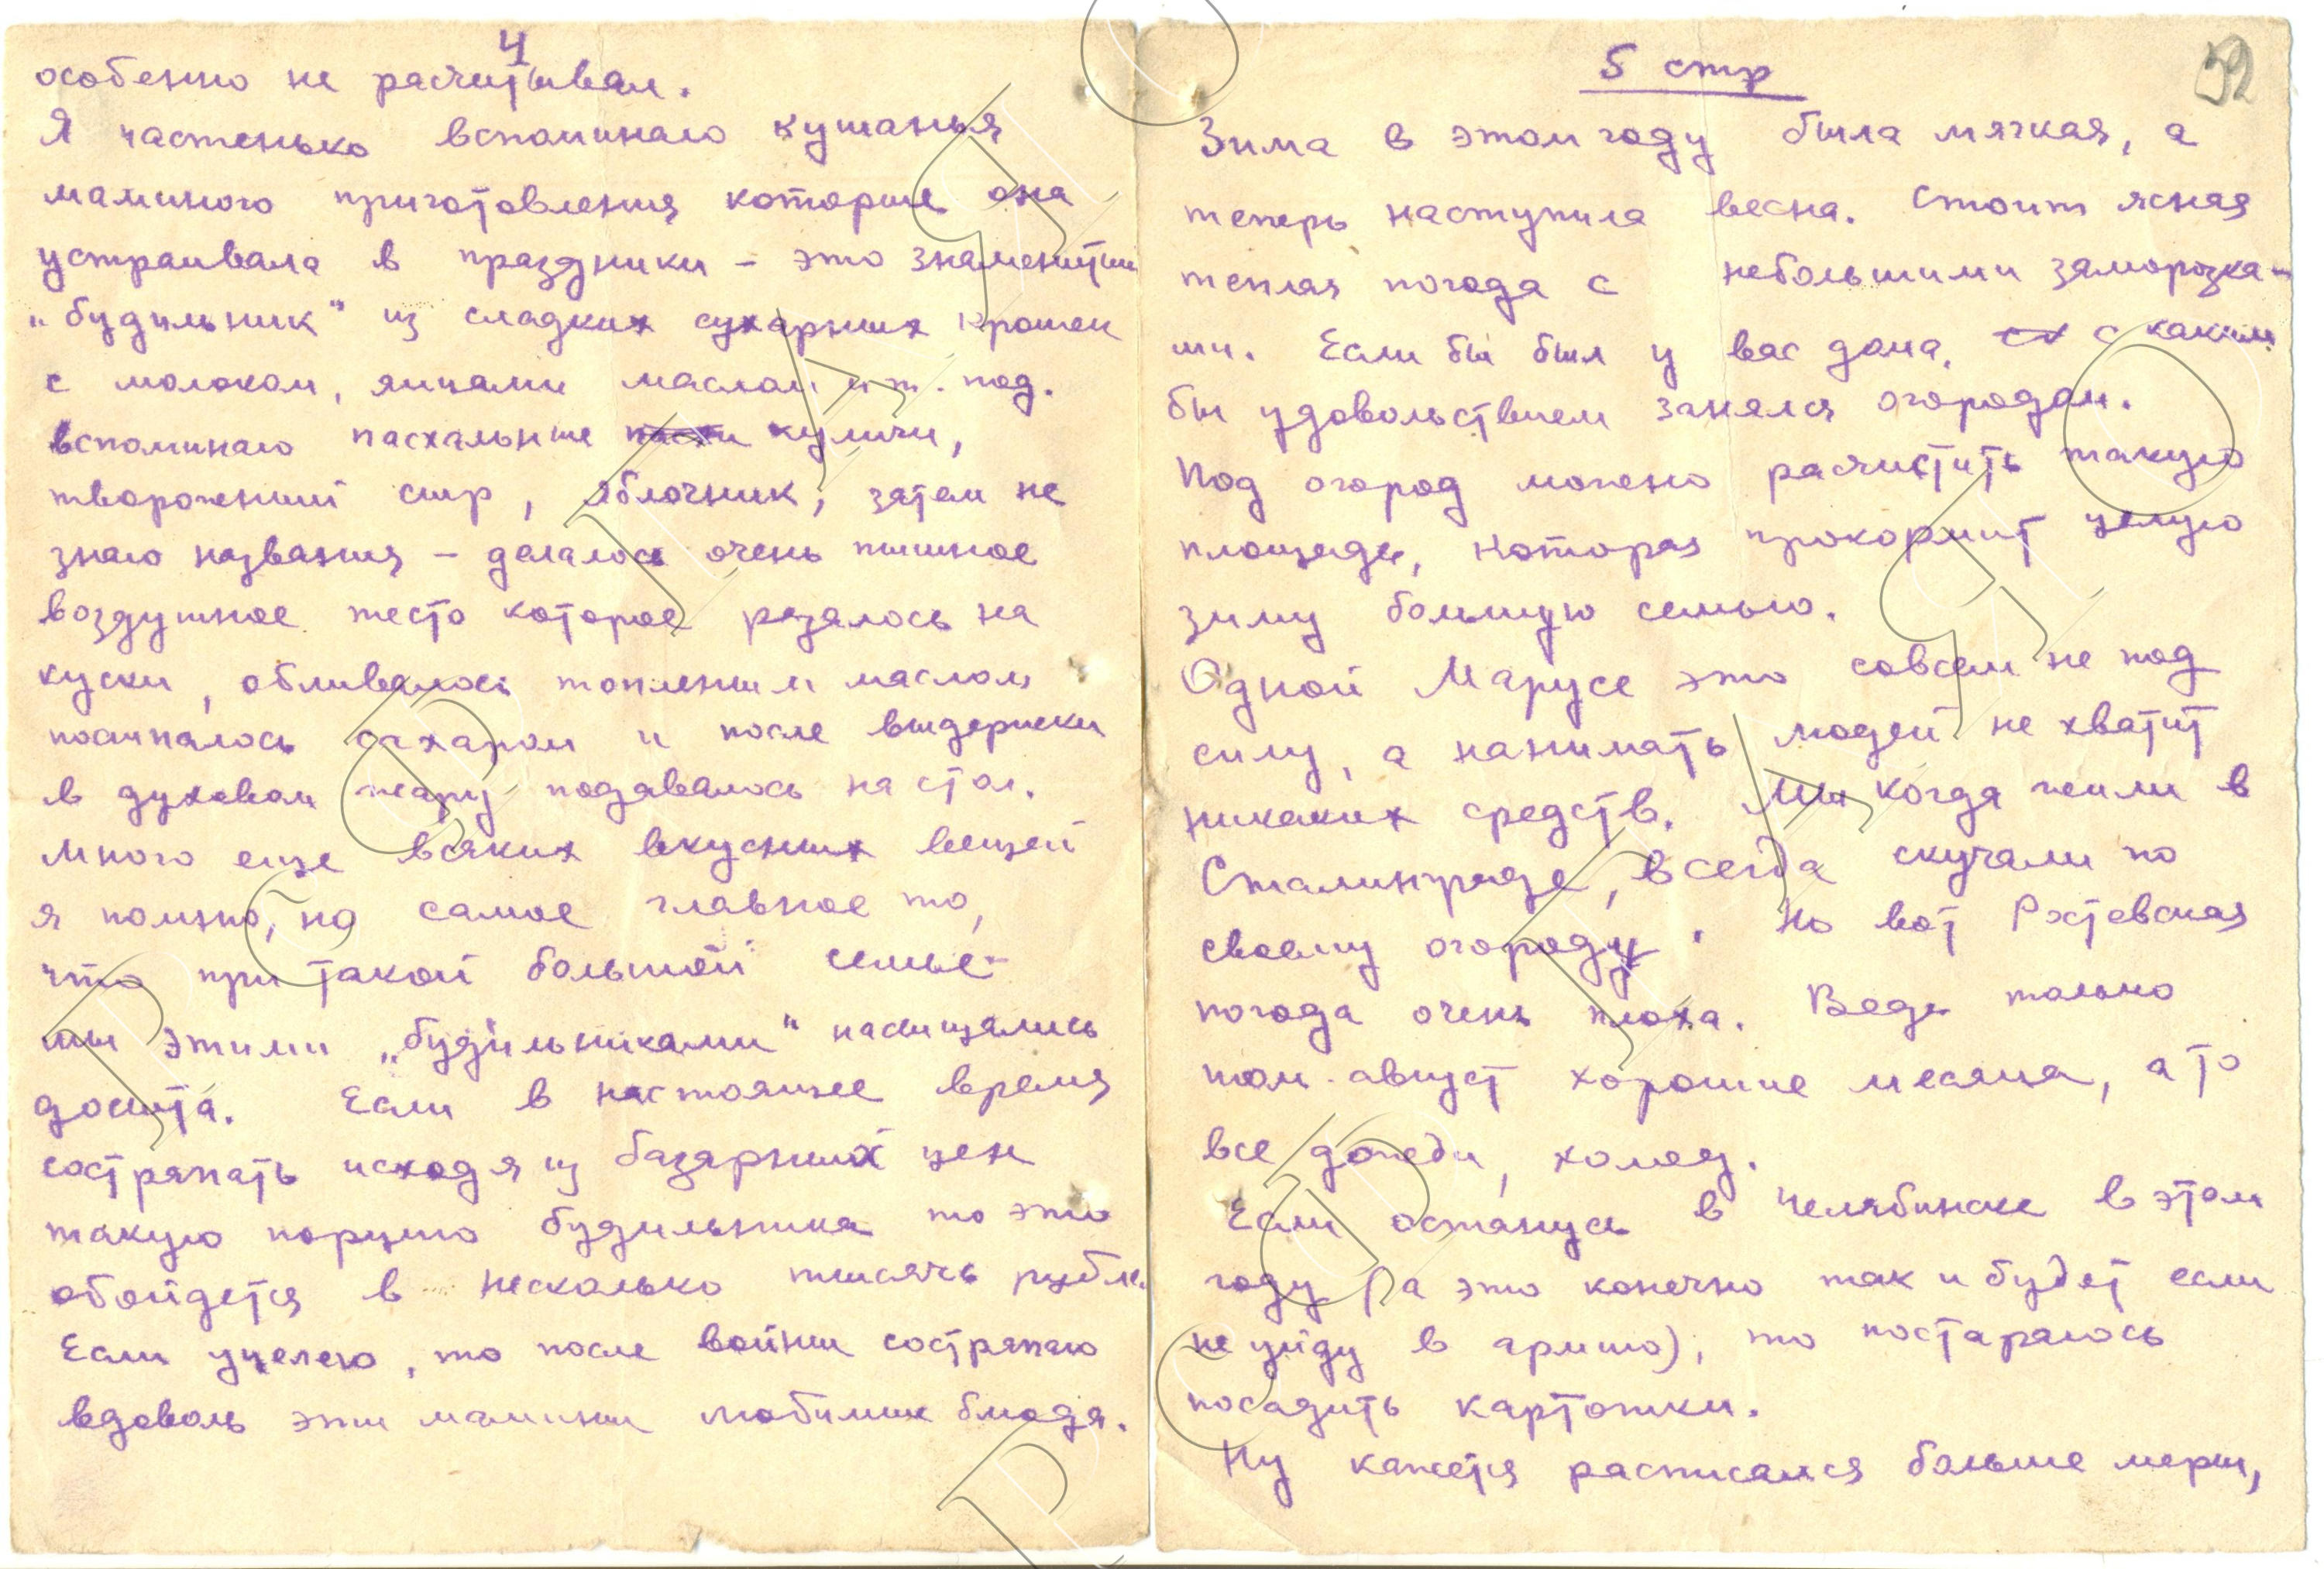 4
особенно не расчитывал.
Я частенько вспоминаю кушанья
маминого приготовления которые она
устраивала в праздники – это знаменитый
„будильник" из сладких сухарных крошек
с молоком, яицами маслом и т. под.
вспоминаю пасхальные куличи,
твороженный сыр, яблочник, затем не
знаю названия – делалось очень пышное
воздушное тесто которое резалось на
куски, обливалось топленым маслом
посыпалось сахаром и после выдержки
в духовом жару подавалось на стол.
Много еще всяких вкусных вещей
я помню, но самое главное то,
что при такой большой семье
мы этими „будильниками" насыщались
досыта. Если в настоящее время
состряпать исходя из базарных цен
такую порцию будильника то это
обойдется в несколько тысячь рубле
Если уцелею, то после войны состряпаю
вдоволь эти мамины любимые блюда.
5 стр
Зима в этом году была мягкая, а
теперь наступила весна. Стоит ясная
теплая погода с небольшими заморозка-
ми. Если бы был у вас дома, с каким
бы удовольствием занялся огородом.
Под огород можно расчистить такую
площадь, которая прокормит целую
зиму большую семью.
Одной Марусе это совсем не под
силу, а нанимать людей не хватит
никаких средств. Мы когда жили в
Сталинграде, всегда скучали по
своему огороду. Но вот Ростовская
погода очень плоха. Ведь только
июл-август хорошие месяца, а то
все дожди, холод.
Если останусь в Челябинске в этом
году (а это конечно так и будет если
не уйду в армию), то постараюсь
посадить картошки.
Ну кажется расписался больше меры,